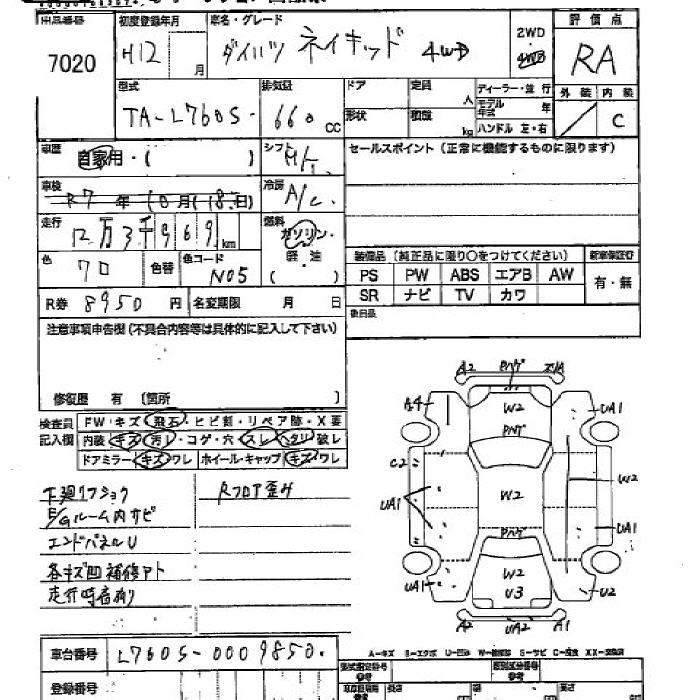 出品番号 初度登録年月 車名・グレード 2WD 評価点
7020 H12 月 ダイハツ ネイキッド 4WD 4WD RA
型式 排気量 ドア 定員 人 ディーラー・並行 外装 内装
TA-L760S- 660 CC 形状 積載 kg モデル年式 年 / C
ハンドル 左・右
車歴 自家用・( ) シフト セールスポイント(正常に機能するものに限ります)
車検 R7年10月(18日) 冷房 A/C
走行 12万3千969km 燃料 ガソリン・
軽油
色 クロ 色替 色コード N05 ( )
装備品(純正品に限り○をつけてください) 新車保証書
PS PW ABS エアB AW 有・無
SR ナビ TV カワ
R券 8950円 名変期限 月 日
後日品
注意事項申告欄(不具合内容等は具体的に記入して下さい)
修復歴 有 〔箇所 〕
検査員記入欄 FW・キズ・飛石・ヒビ割・リペア跡・X要
内装・キズ・汚レ・コゲ・穴・スレ・ヘタリ・破レ
ドアミラー・キズ・ワレ ホイール・キャップ・キズ・ワレ
下廻リフショク Rフロア歪み
E/Gルーム内サビ
エンドパネルU
各キズ凹補修アト
走行時音有り
A2 A4 W2 UA1
C2 W2 W2
UA1 UA1
UA1 W2 U3 U2
A2 UA2 A1
車台番号 L760S-0009850.
登録番号